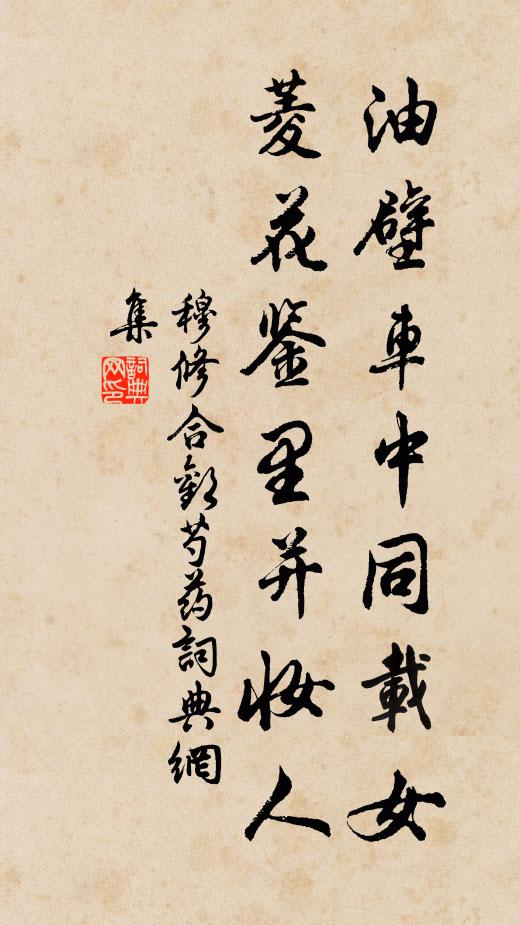 油壁車中同載女
菱花鉴里并妆人
穆修合歡芍药詞典網
集
詞典
网印